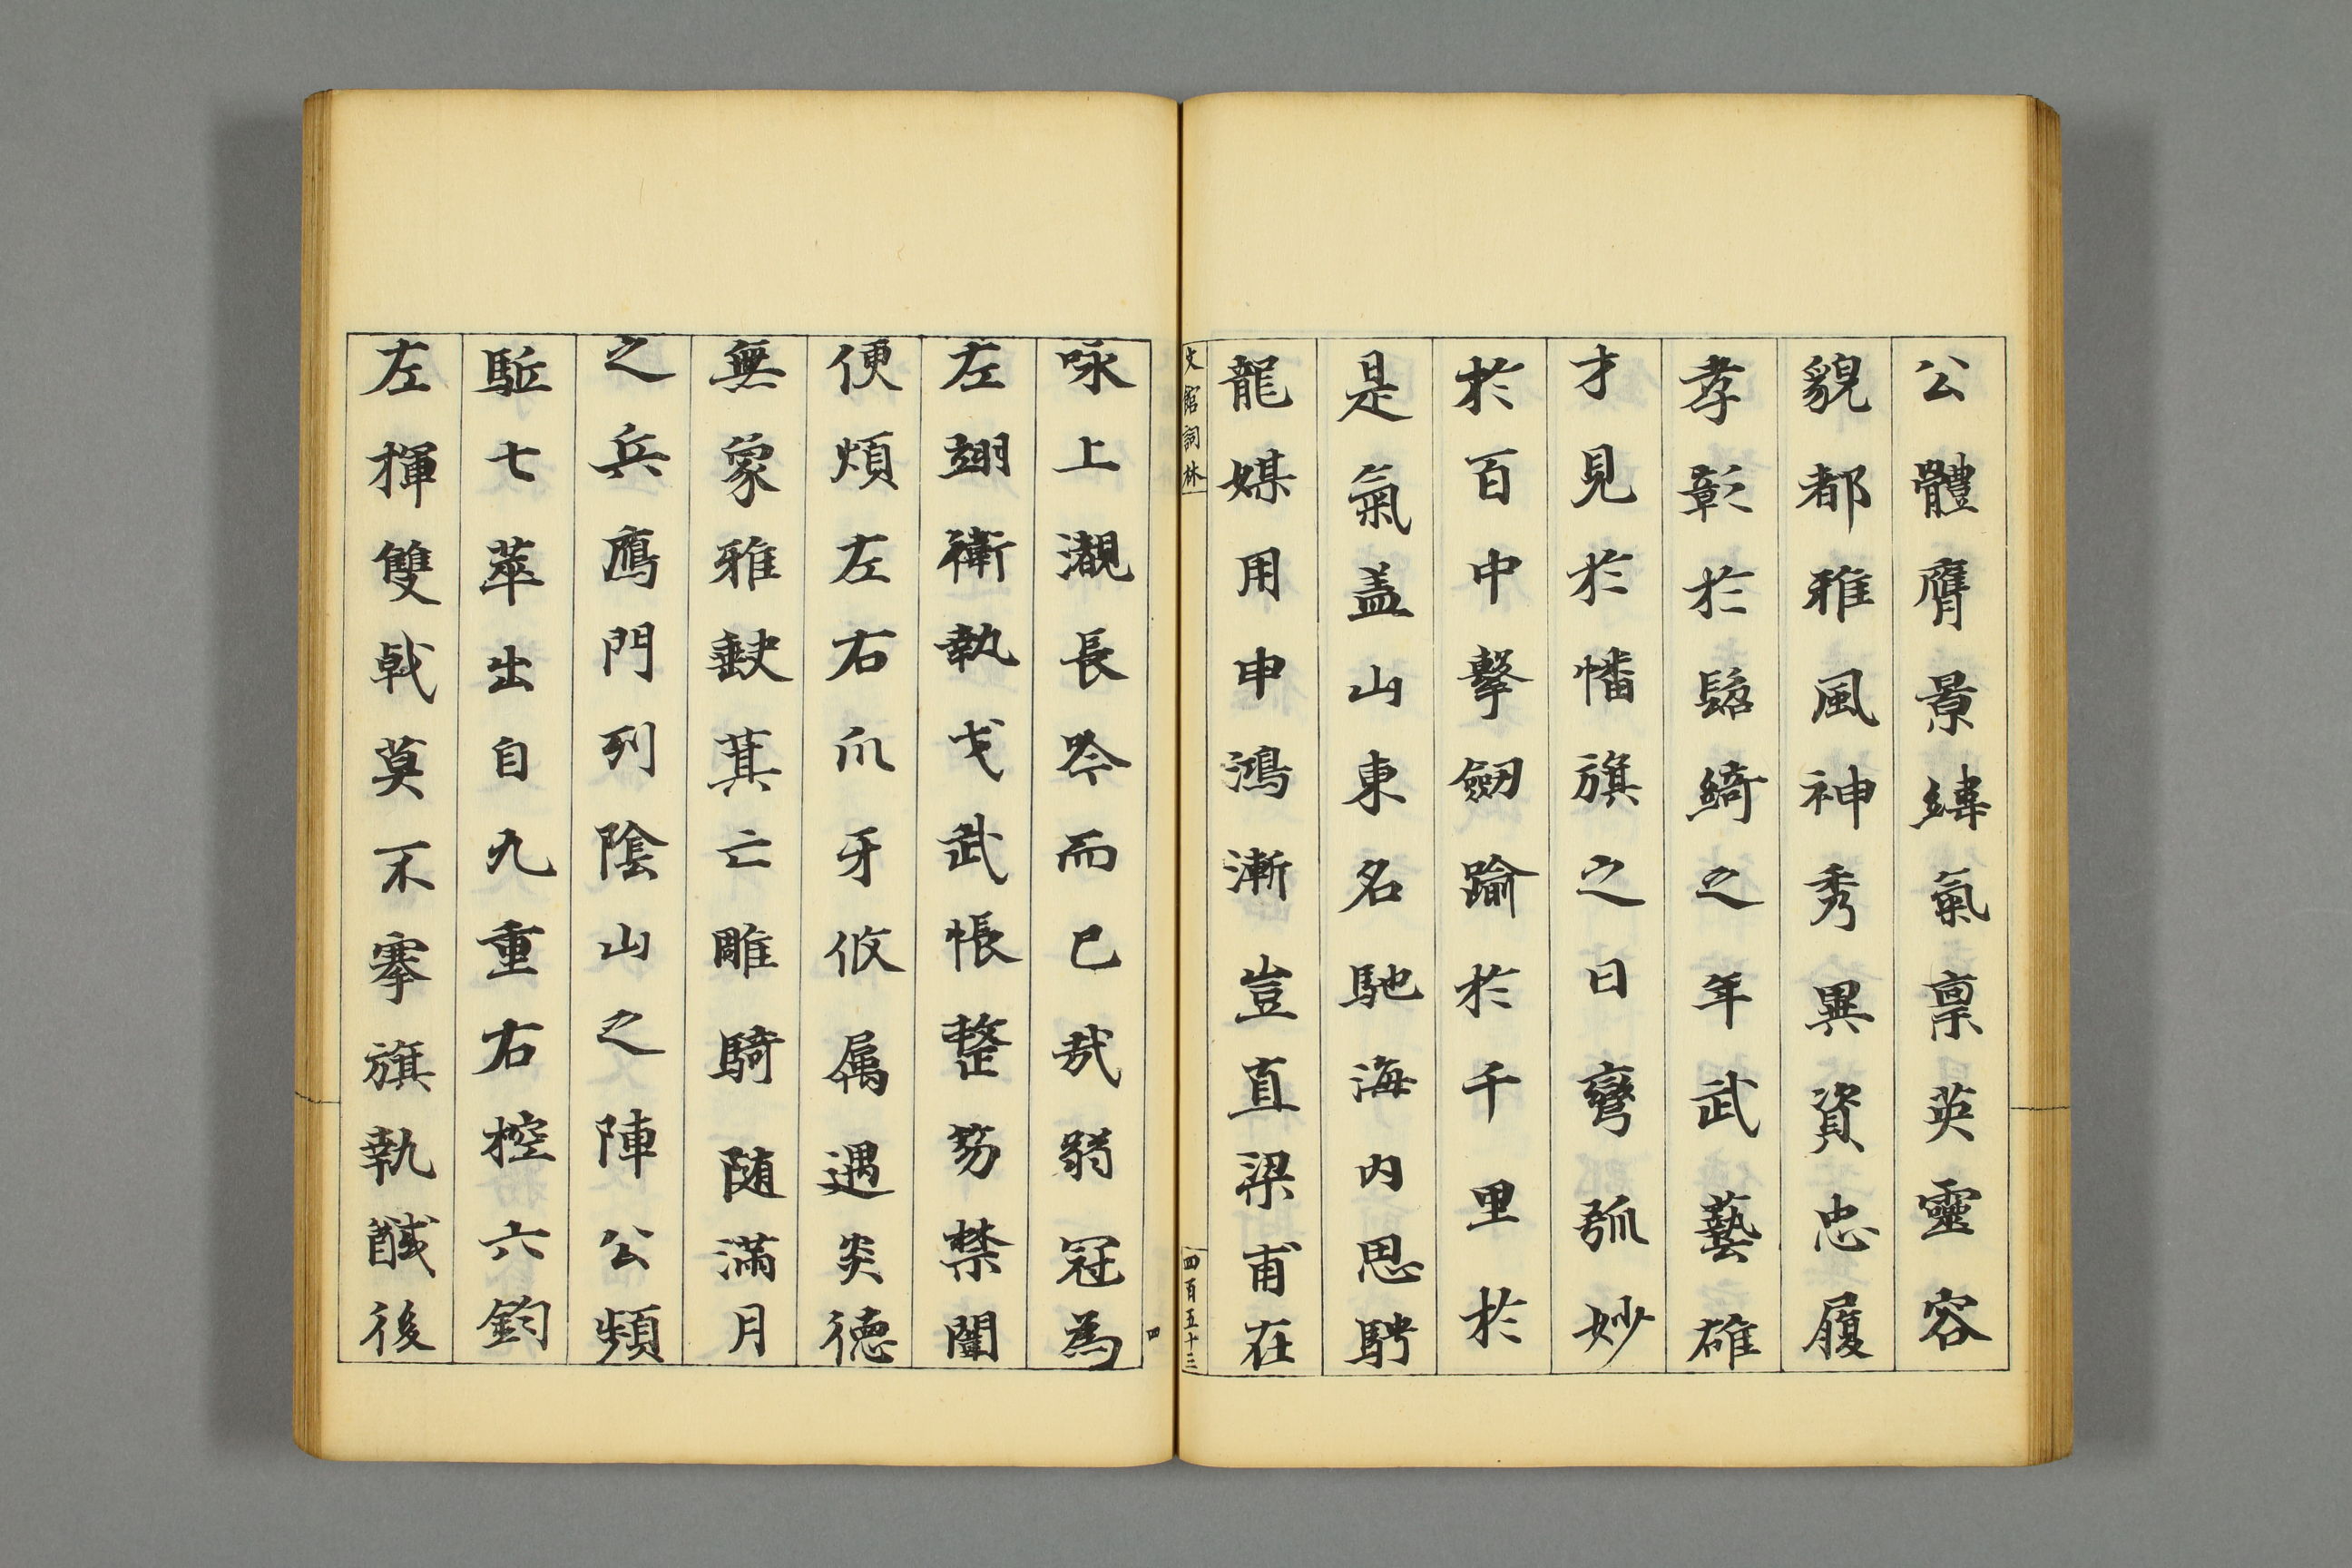 公體膺景緯氣禀英靈容
貌都雅風神秀異資忠履
孝彰於髫綺之年武藝雄
才見於幡旗之日彎弧妙
於百中擊劒踰於千里於
是氣盖山東名馳海内思騁
龍媒用申鴻漸豈直梁甫在
文館詞林
四百五十三
四
咏上瀙長吟而已哉弱冠為
左翊衛執戈武帳整笏禁闈
便煩左右爪牙攸属遇炎德
無象雅缺其亡雕騎随滿月
之兵鴈門列陰山之陣公頻
駈七萃出自九重右控六鈞
左揮雙戟莫不搴旗執馘後